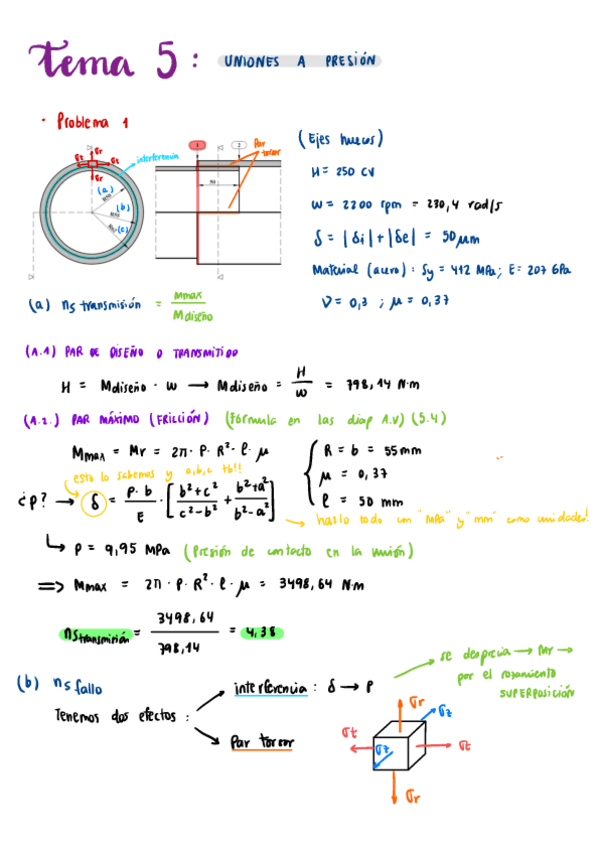 Tema 5: UNIONES A PRESIÓN
• Problema 1
(Ejes huecos)
σr
σt σt
σr
interferencia
(a)
(b)
(c)
Par torsor
H = 250 CV
w = 2200 rpm = 230,4 rad/s
δ = |δi| + |δe| = 50 μm
Material (acero): Sy = 412 MPa; E = 207 GPa
ν = 0,3 ; μ = 0,37
(a) ns transmisión = Mmax / Mdiseño
(A.1) PAR DE DISEÑO O TRANSMITIDO
H = Mdiseño · w → Mdiseño = H / w = 798,14 N·m
(A.2.) PAR MÁXIMO (FRICCIÓN) (Fórmula en las diap A.V) (5.4)
Mmax = Mr = 2π · P · R² · l · μ
R = b = 55 mm
μ = 0,37
l = 50 mm
esto lo sabemos y a,b,c tb!!
¿p? → δ = P · b / E · [ b²+c² / c²-b² + b²+a² / b²-a² ]
hazlo todo con "MPa" y "mm" como unidades!
↳ P = 9,95 MPa (Presión de contacto en la unión)
⇒ Mmax = 2π · P · R² · l · μ = 3498,64 N·m
ns transmisión = 3498,64 / 798,14 = 4,38
(b) ns fallo
Tenemos dos efectos :
interferencia : δ → P
Par torsor
se desprecia → Mr →
por el rozamiento
SUPERPOSICIÓN
σr
σz
σt
σz
σt
σr